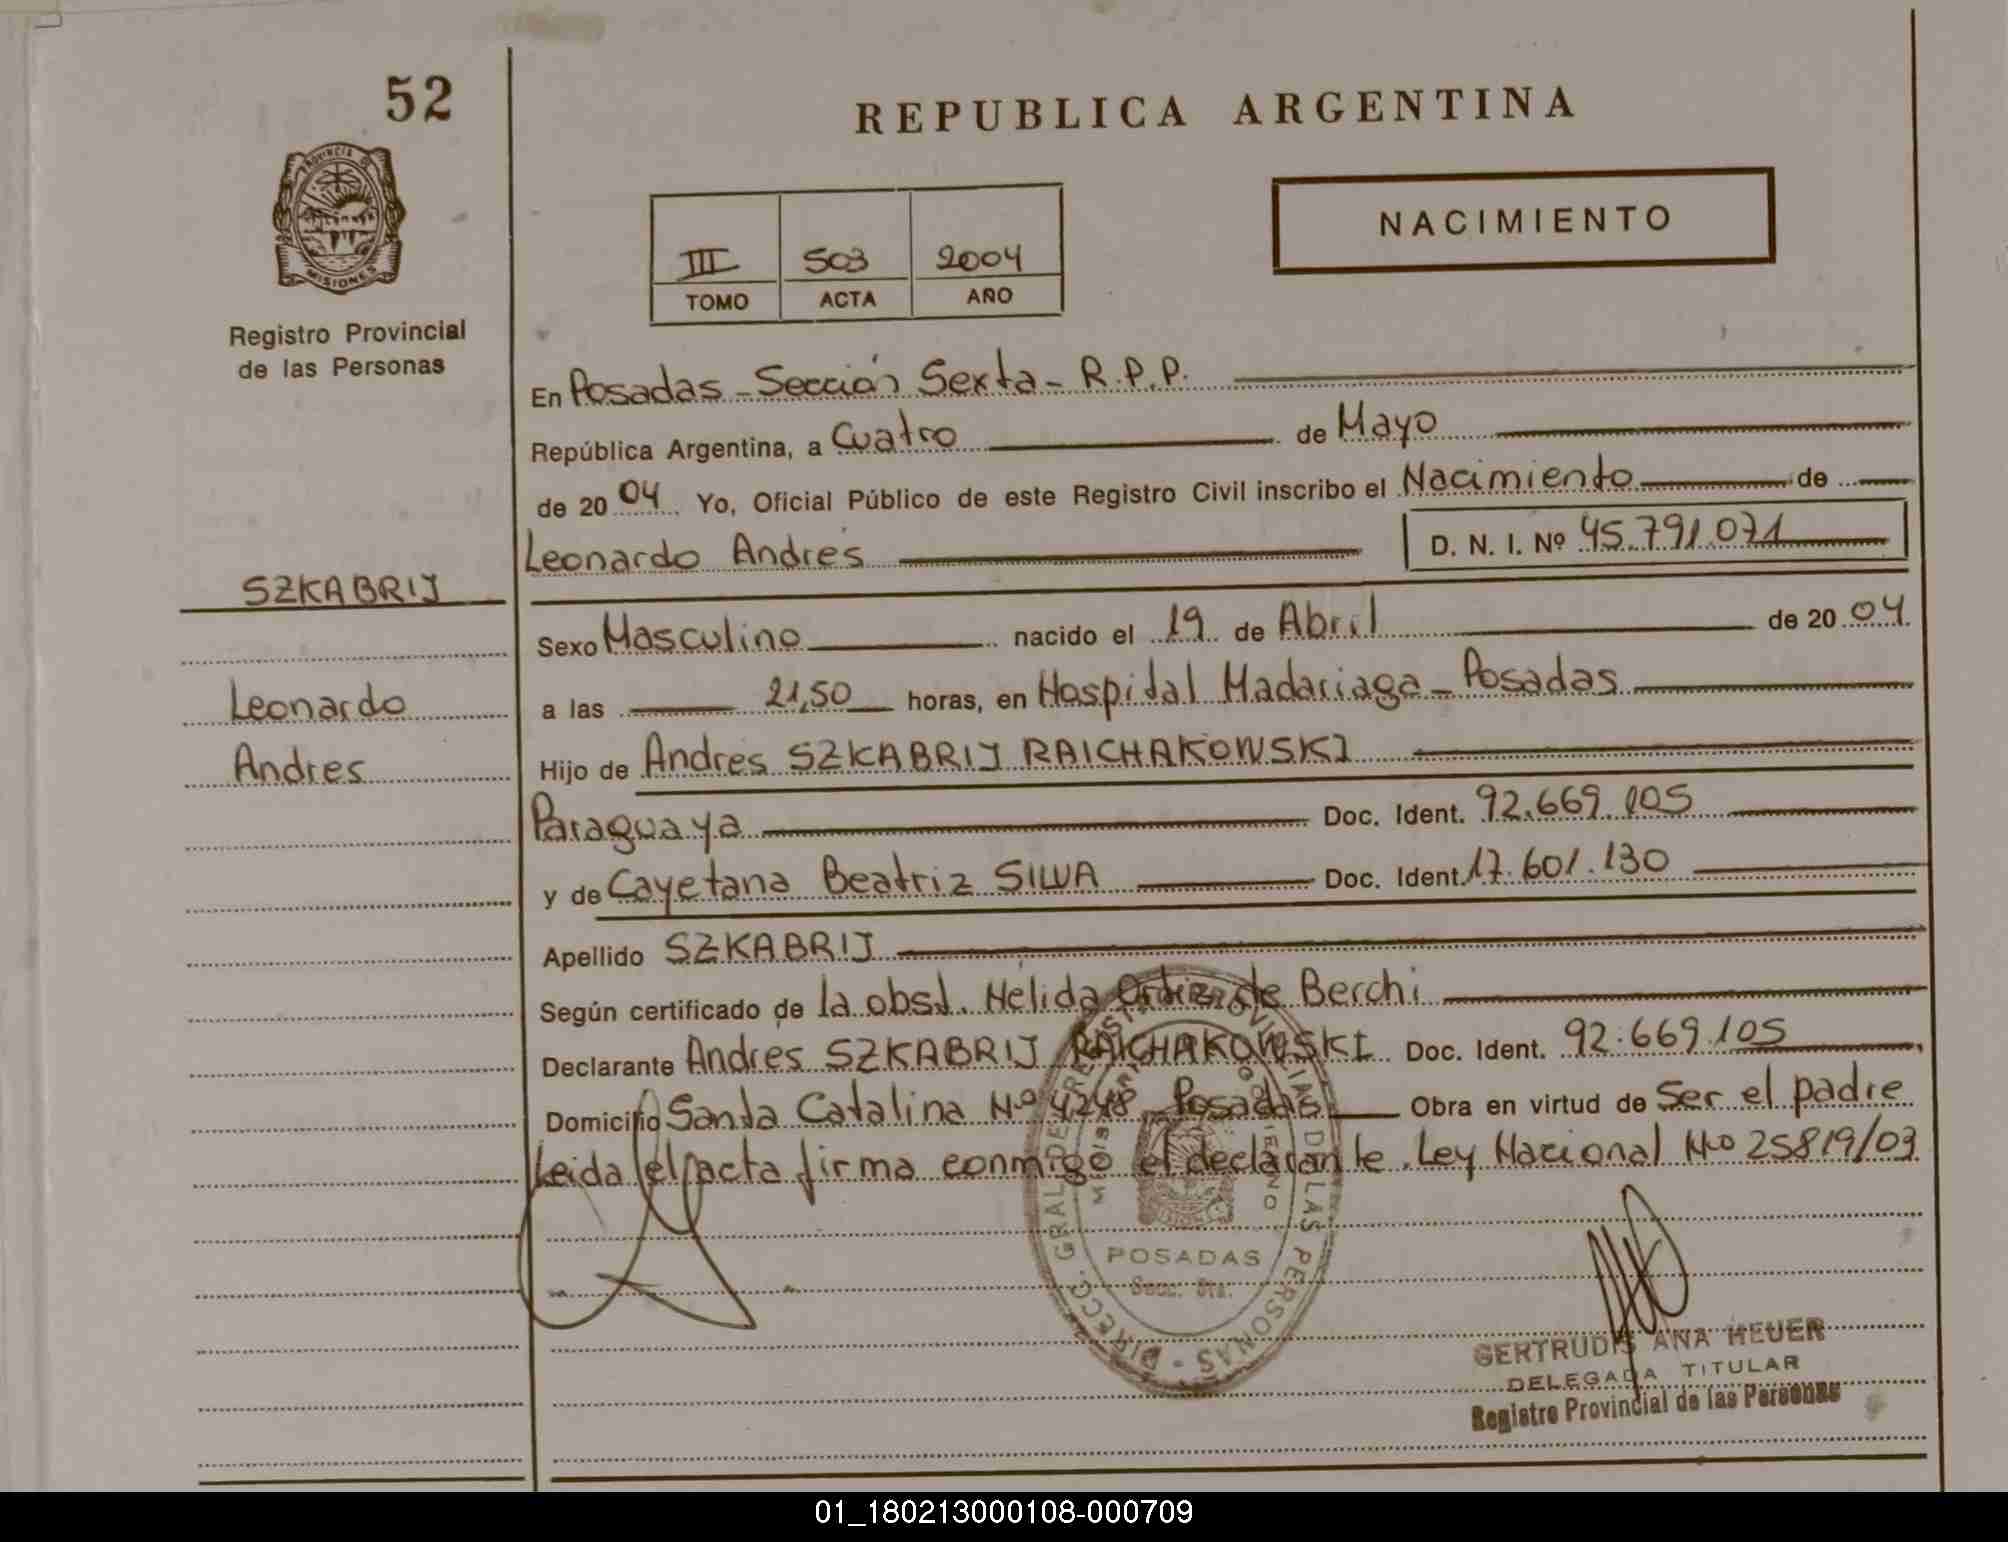 52
REPUBLICA ARGENTINA
PROVINCIA DE
MISIONES
Registro Provincial
de las Personas
NACIMIENTO
III 503 2004
TOMO ACTA AÑO
En Posadas - Sección Sexta - R.P.P.
República Argentina, a Cuatro de Mayo
de 2004 Yo, Oficial Público de este Registro Civil inscribo el Nacimiento de
Leonardo Andres D. N. I. Nº 45.791.071
SZKABRIJ
Leonardo
Andres
Sexo Masculino nacido el 19 de Abril de 2004
a las 21,50 horas, en Hospital Madariaga - Posadas
Hijo de Andres SZKABRIJ RAICHAKOWSKI
Paraguaya Doc. Ident. 92.669.105
y de Cayetana Beatriz SILVA Doc. Ident. 17.601.130
Apellido SZKABRIJ
Según certificado de la obst. Nelida Ortiz de Berchi
Declarante Andres SZKABRIJ RAICHAKOWSKI Doc. Ident. 92.669.105
Domicilio Santa Catalina Nº 4248 - Posadas Obra en virtud de Ser el padre
Leida el acta firma conmigo el declarante. Ley Nacional Nº 25819/03
DIRECC. GRAL. DE REGISTRO PROVINCIAL DE LAS PERSONAS
MISIONES
GOBIERNO
POSADAS
Secc. 6ta.
GERTRUDIS ANA HEUER
DELEGADA TITULAR
Registro Provincial de las Personas
01_180213000108-000709